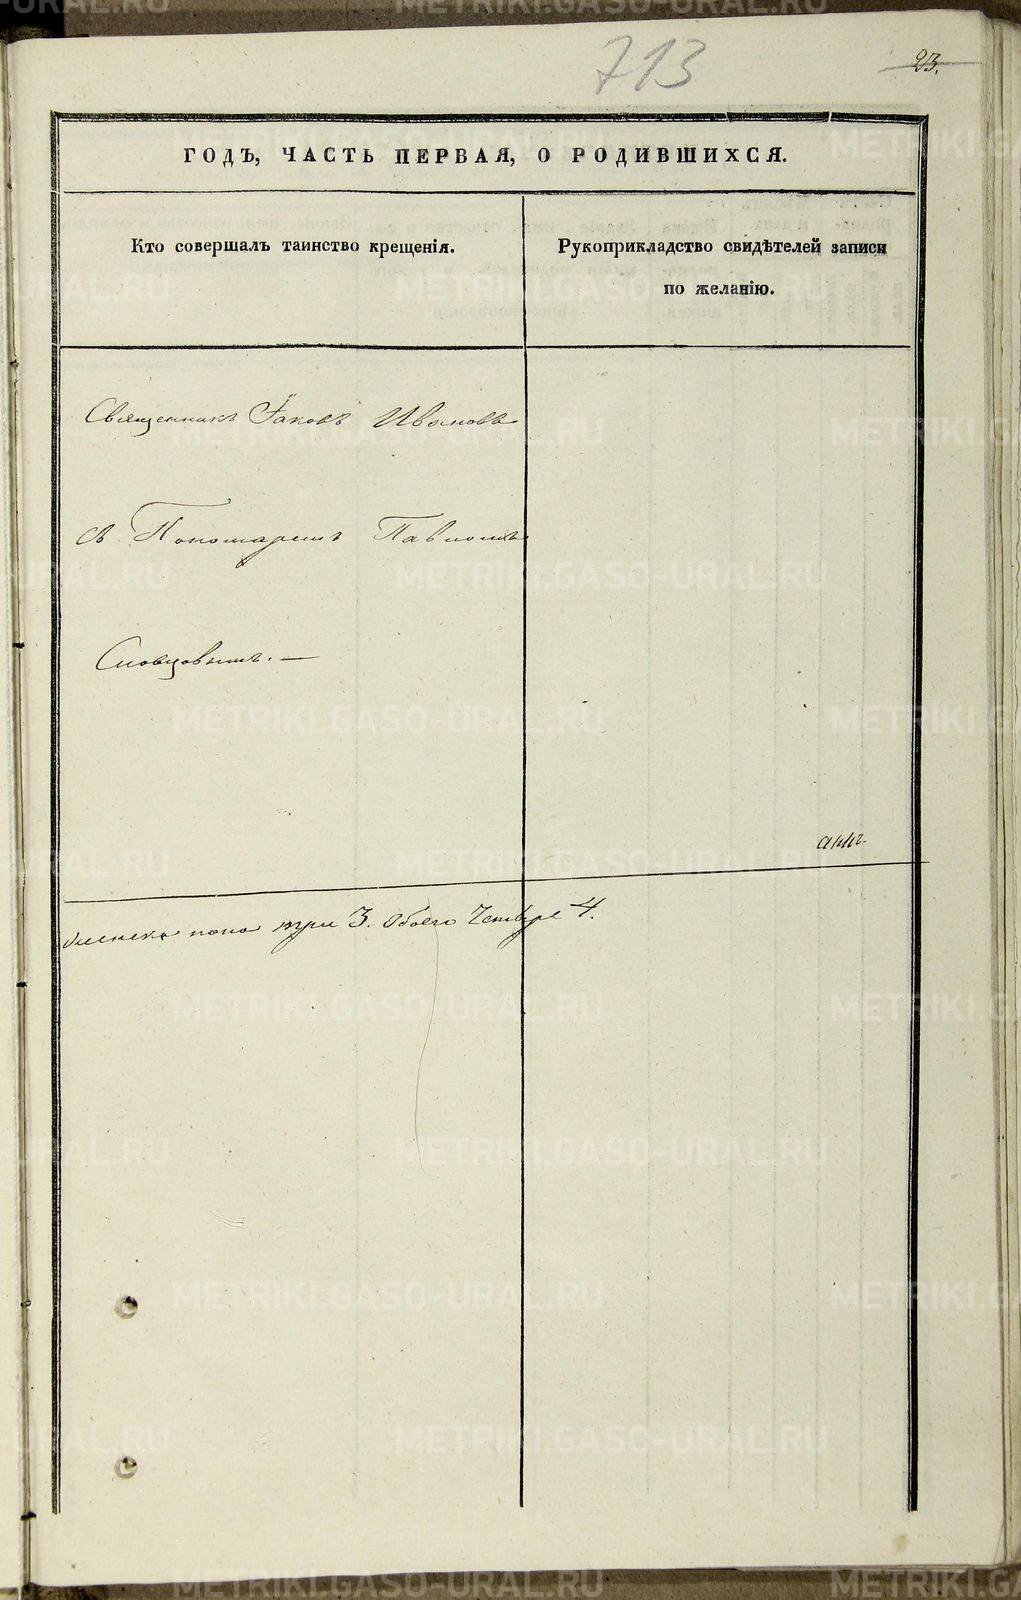 713
23.
ГОДЪ, ЧАСТЬ ПЕРВАЯ, О РОДИВШИХСЯ.
Кто совершалъ таинство крещенія.
Рукоприкладство свидѣтелей записи
по желанію.
Священникъ Іаковъ Ивановъ
съ Пономаремъ Павломъ
Словцовымъ. —
женска пола три 3. Обоего Четыре 4.
METRIKI.GASO-URAL.RU